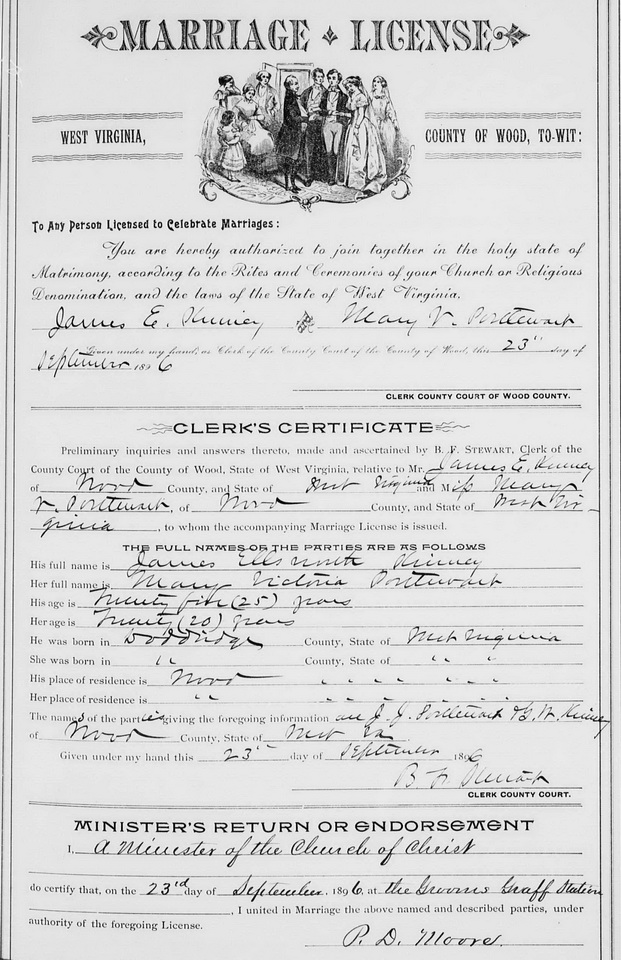 MARRIAGE LICENSE
WEST VIRGINIA,
COUNTY OF WOOD, TO-WIT:
To Any Person Licensed to Celebrate Marriages:
You are hereby authorized to join together in the holy state of
Matrimony, according to the Rites and Ceremonies of your Church or Religious
Denomination, and the laws of the State of West Virginia.
James E. Kinney & Mary V. Porttewart
Given under my hand, as Clerk of the County Court of the County of Wood, this 23" day of
September 1896
CLERK COUNTY COURT OF WOOD COUNTY.
CLERK'S CERTIFICATE
Preliminary inquiries and answers thereto, made and ascertained by B. F. STEWART, Clerk of the
County Court of the County of Wood, State of West Virginia, relative to Mr. James E. Kinney
of Wood County, and State of West Virginia and Miss Mary
V. Porttewart, of Wood County, and State of West Vir-
ginia, to whom the accompanying Marriage License is issued.
THE FULL NAMES OF THE PARTIES ARE AS FOLLOWS
His full name is James Ellsworth Kinney
Her full name is Mary Victoria Porttewart
His age is Twenty five (25) years
Her age is Twenty (20) years
He was born in Doddridge County, State of West Virginia
She was born in " County, State of " "
His place of residence is Wood " " " "
Her place of residence is " " " " "
The names of the parties giving the foregoing information are J. J. Porttewart & G. W. Kinney
of Wood County, State of West Va
Given under my hand this 23" day of September 1896
B. F. Stewart
CLERK COUNTY COURT.
MINISTER'S RETURN OR ENDORSEMENT
I, A Minister of the Church of Christ
do certify that, on the 23rd day of September, 1896, at the Grooms Graff Station
, I united in Marriage the above named and described parties, under
authority of the foregoing License.
P. D. Moore.